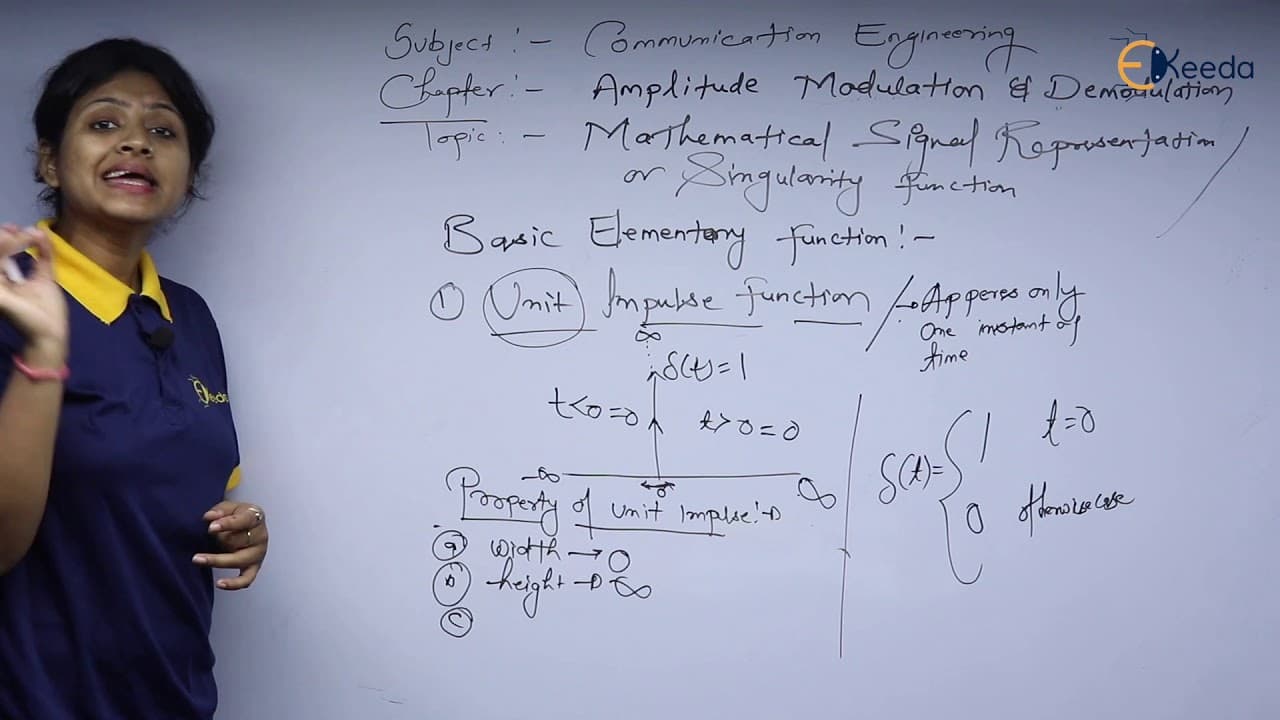 Subject :- Communication Engineering
EKeeda
Chapter :- Amplitude Modulation & Demodulation
Topic :- Mathematical Signal Representation
or Singularity function
Basic Elementary function :-
① Unit Impulse function
→ Apperes only
One instant of
time
∞
δ(t)=1
t<0=0
t>0=0
-∞
0
∞
δ(t)= { 1 t=0
0 otherwisecase
Property of unit impulse :-
ⓐ width → 0
ⓑ height → ∞
ⓒ